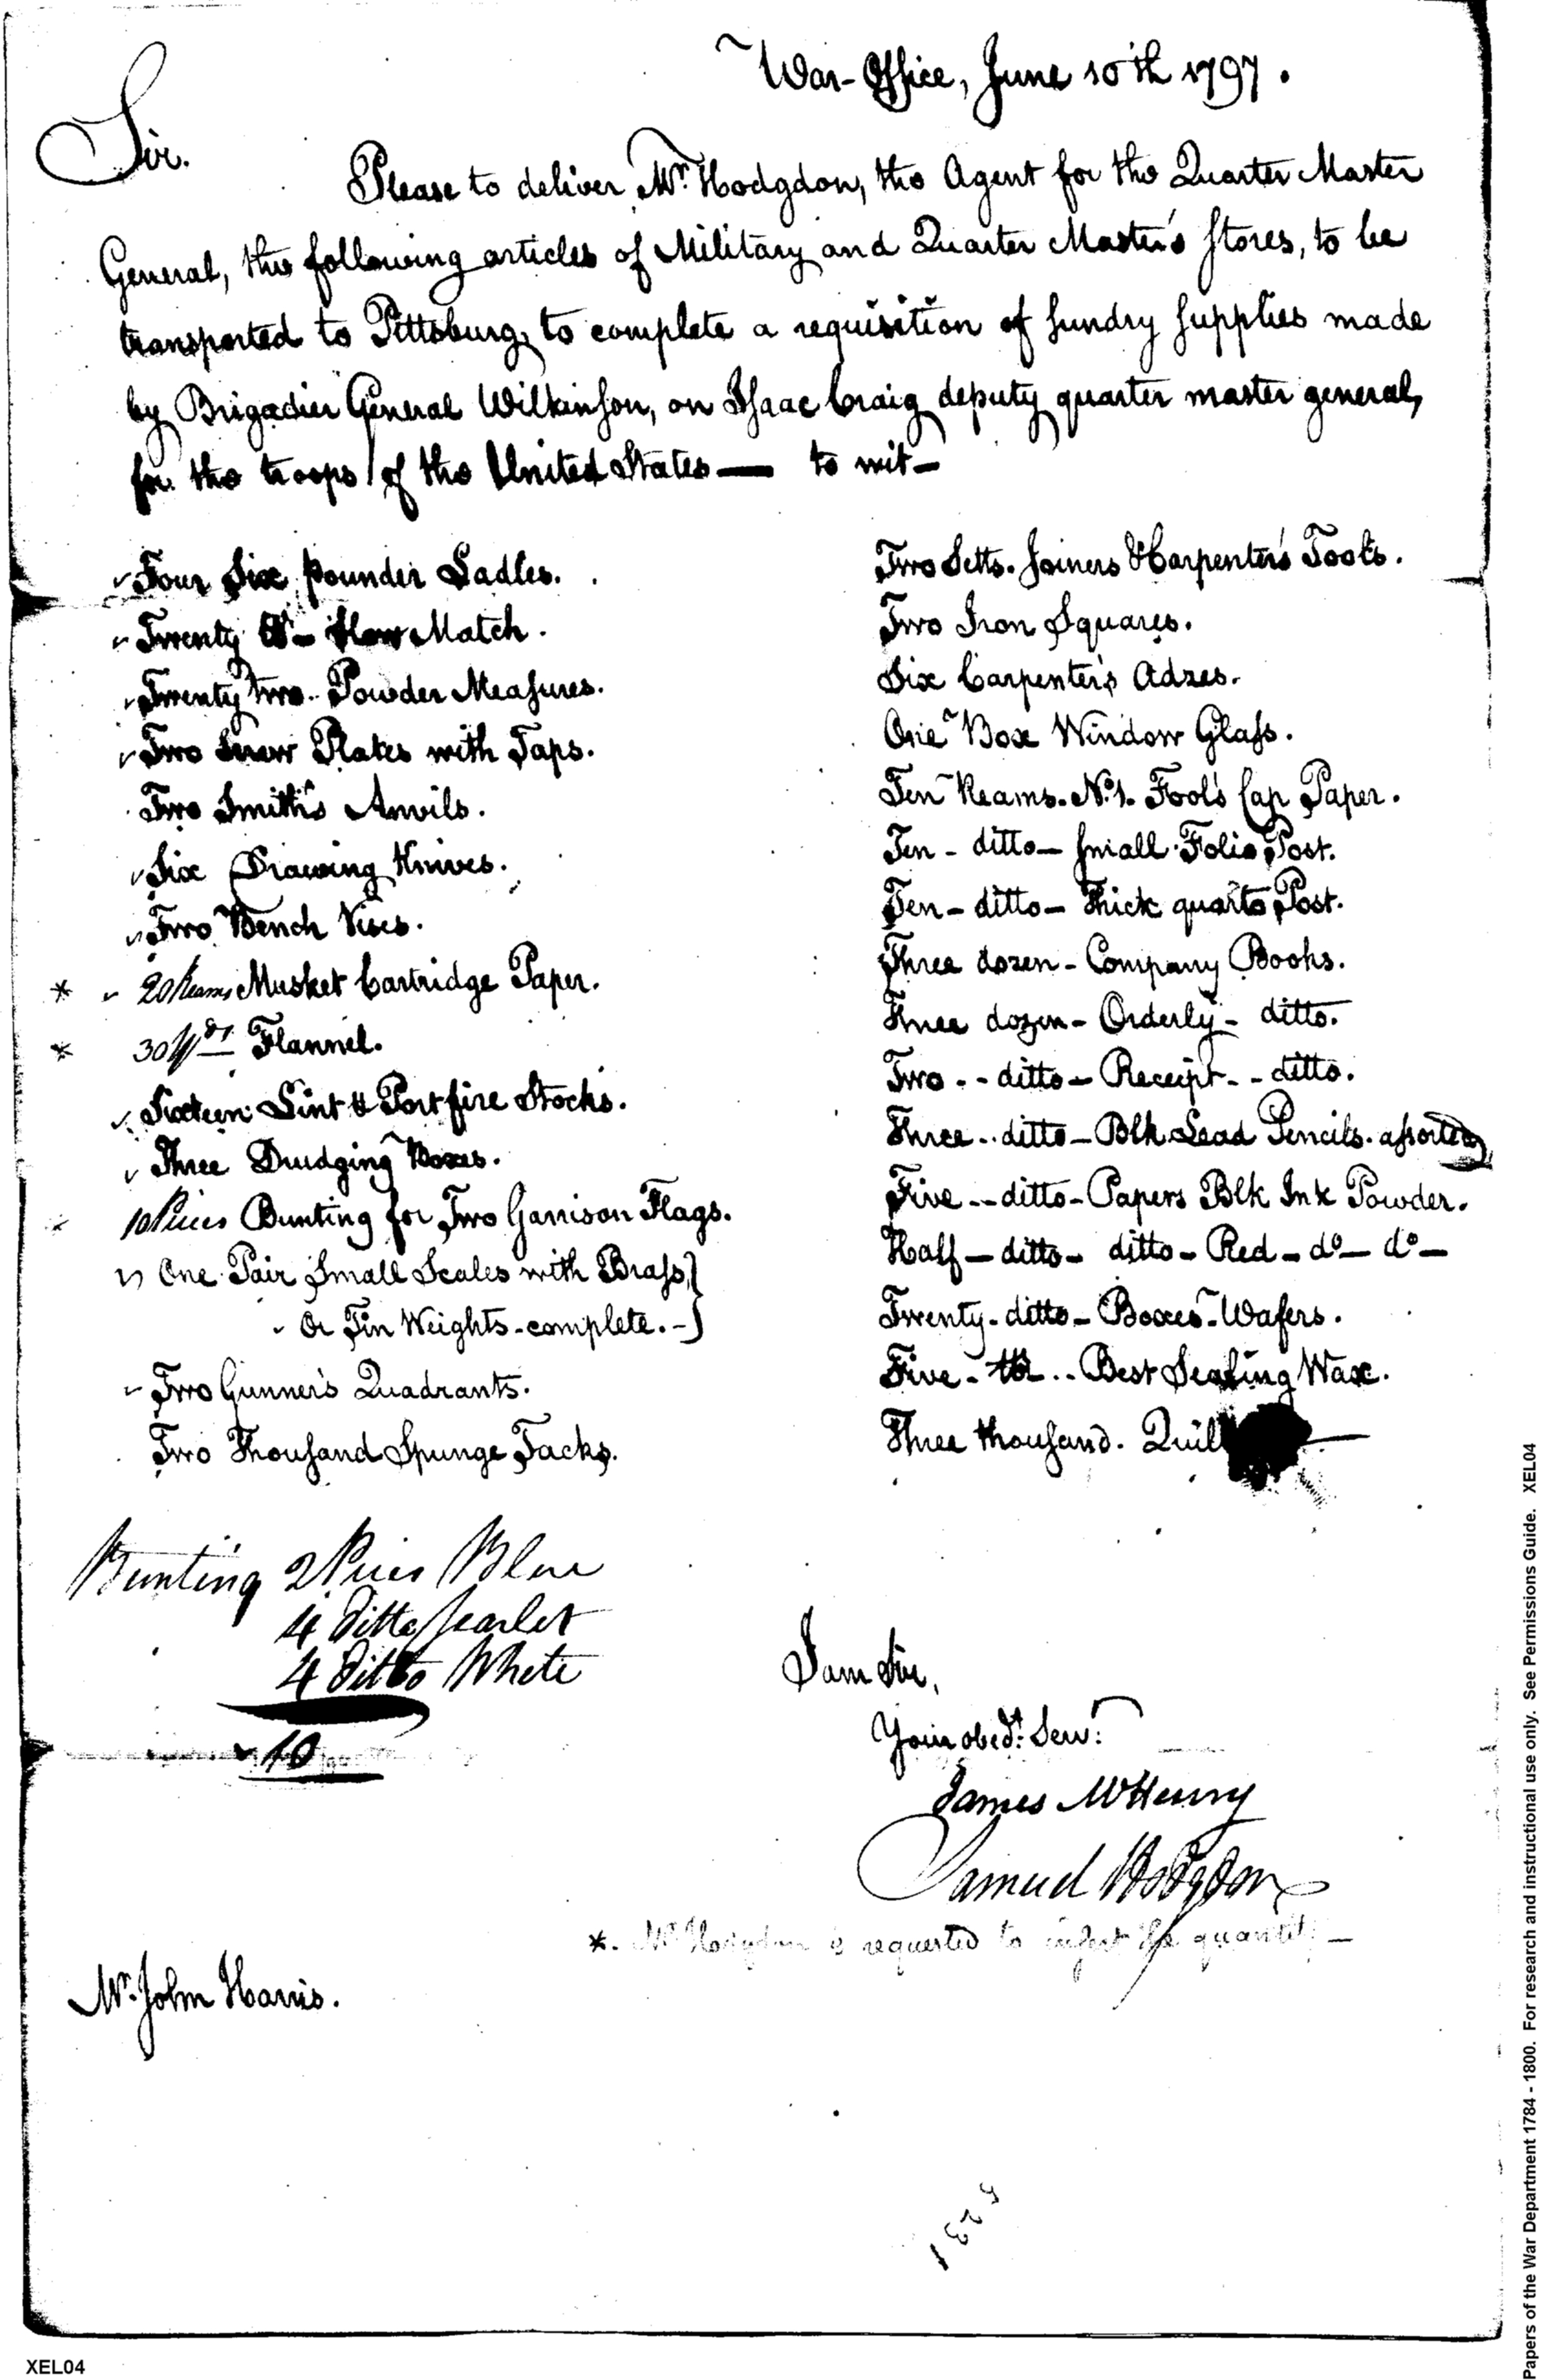 War-Office, June 10th 1797.
Sir.
Please to deliver Mr. Hodgdon, the Agent for the Quarter Master
General, the following articles of Military and Quarter Master's Stores, to be
transported to Pittsburg, to complete a requisition of Sundry Supplies made
by Brigadier General Wilkinson, on Isaac Craig deputy quarter master general,
for the troops of the United States — to wit —
Four Six pounder Ladles.
Twenty lb - Slow Match.
Twenty two Powder Measures.
Two Screw Plates with Taps.
Two Smith's Anvils.
Six Drawing Knives.
Two Bench Vises.
* 20 Reams Musket Cartridge Paper.
* 30 Yds Flannel.
Sixteen Lint & Portfire Stocks.
Three Drudging Boxes.
* 10 Pieces Bunting for Two Garrison Flags.
One Pair Small Scales with Brass
Or Tin Weights - complete.
Two Gunner's Quadrants.
Two Thousand Spunge Tacks.
Two Setts. Joiners & Carpenter's Tools.
Two Iron Squares.
Six Carpenter's Adzes.
One Box Window Glass.
Ten Reams. No. 1. Fool's Cap Paper.
Ten - ditto - small Folio Post.
Ten - ditto - Thick quarto Post.
Three dozen - Company Books.
Three dozen - Orderly - ditto.
Two - - ditto - Receipt - - ditto.
Three - - ditto - Blk Lead Pencils. assorted
Five - - ditto - Papers Blk Ink Powder.
Half - ditto - ditto - Red - do - do -
Twenty - ditto - Boxes - Wafers.
Five - lb - - Best Sealing Wax.
Three thousand. Quill
Bunting 2 Pieces Blue
4 Ditto Scarlet
4 Ditto White
10
I am Sir,
Your obedt. Servt.
James McHenry
Samuel Hodgdon
*. Mr Hodgdon is requested to insert the quantity -
Mr. John Harris.
Papers of the War Department 1784 - 1800. For research and instructional use only. See Permissions Guide. XEL04
XEL04